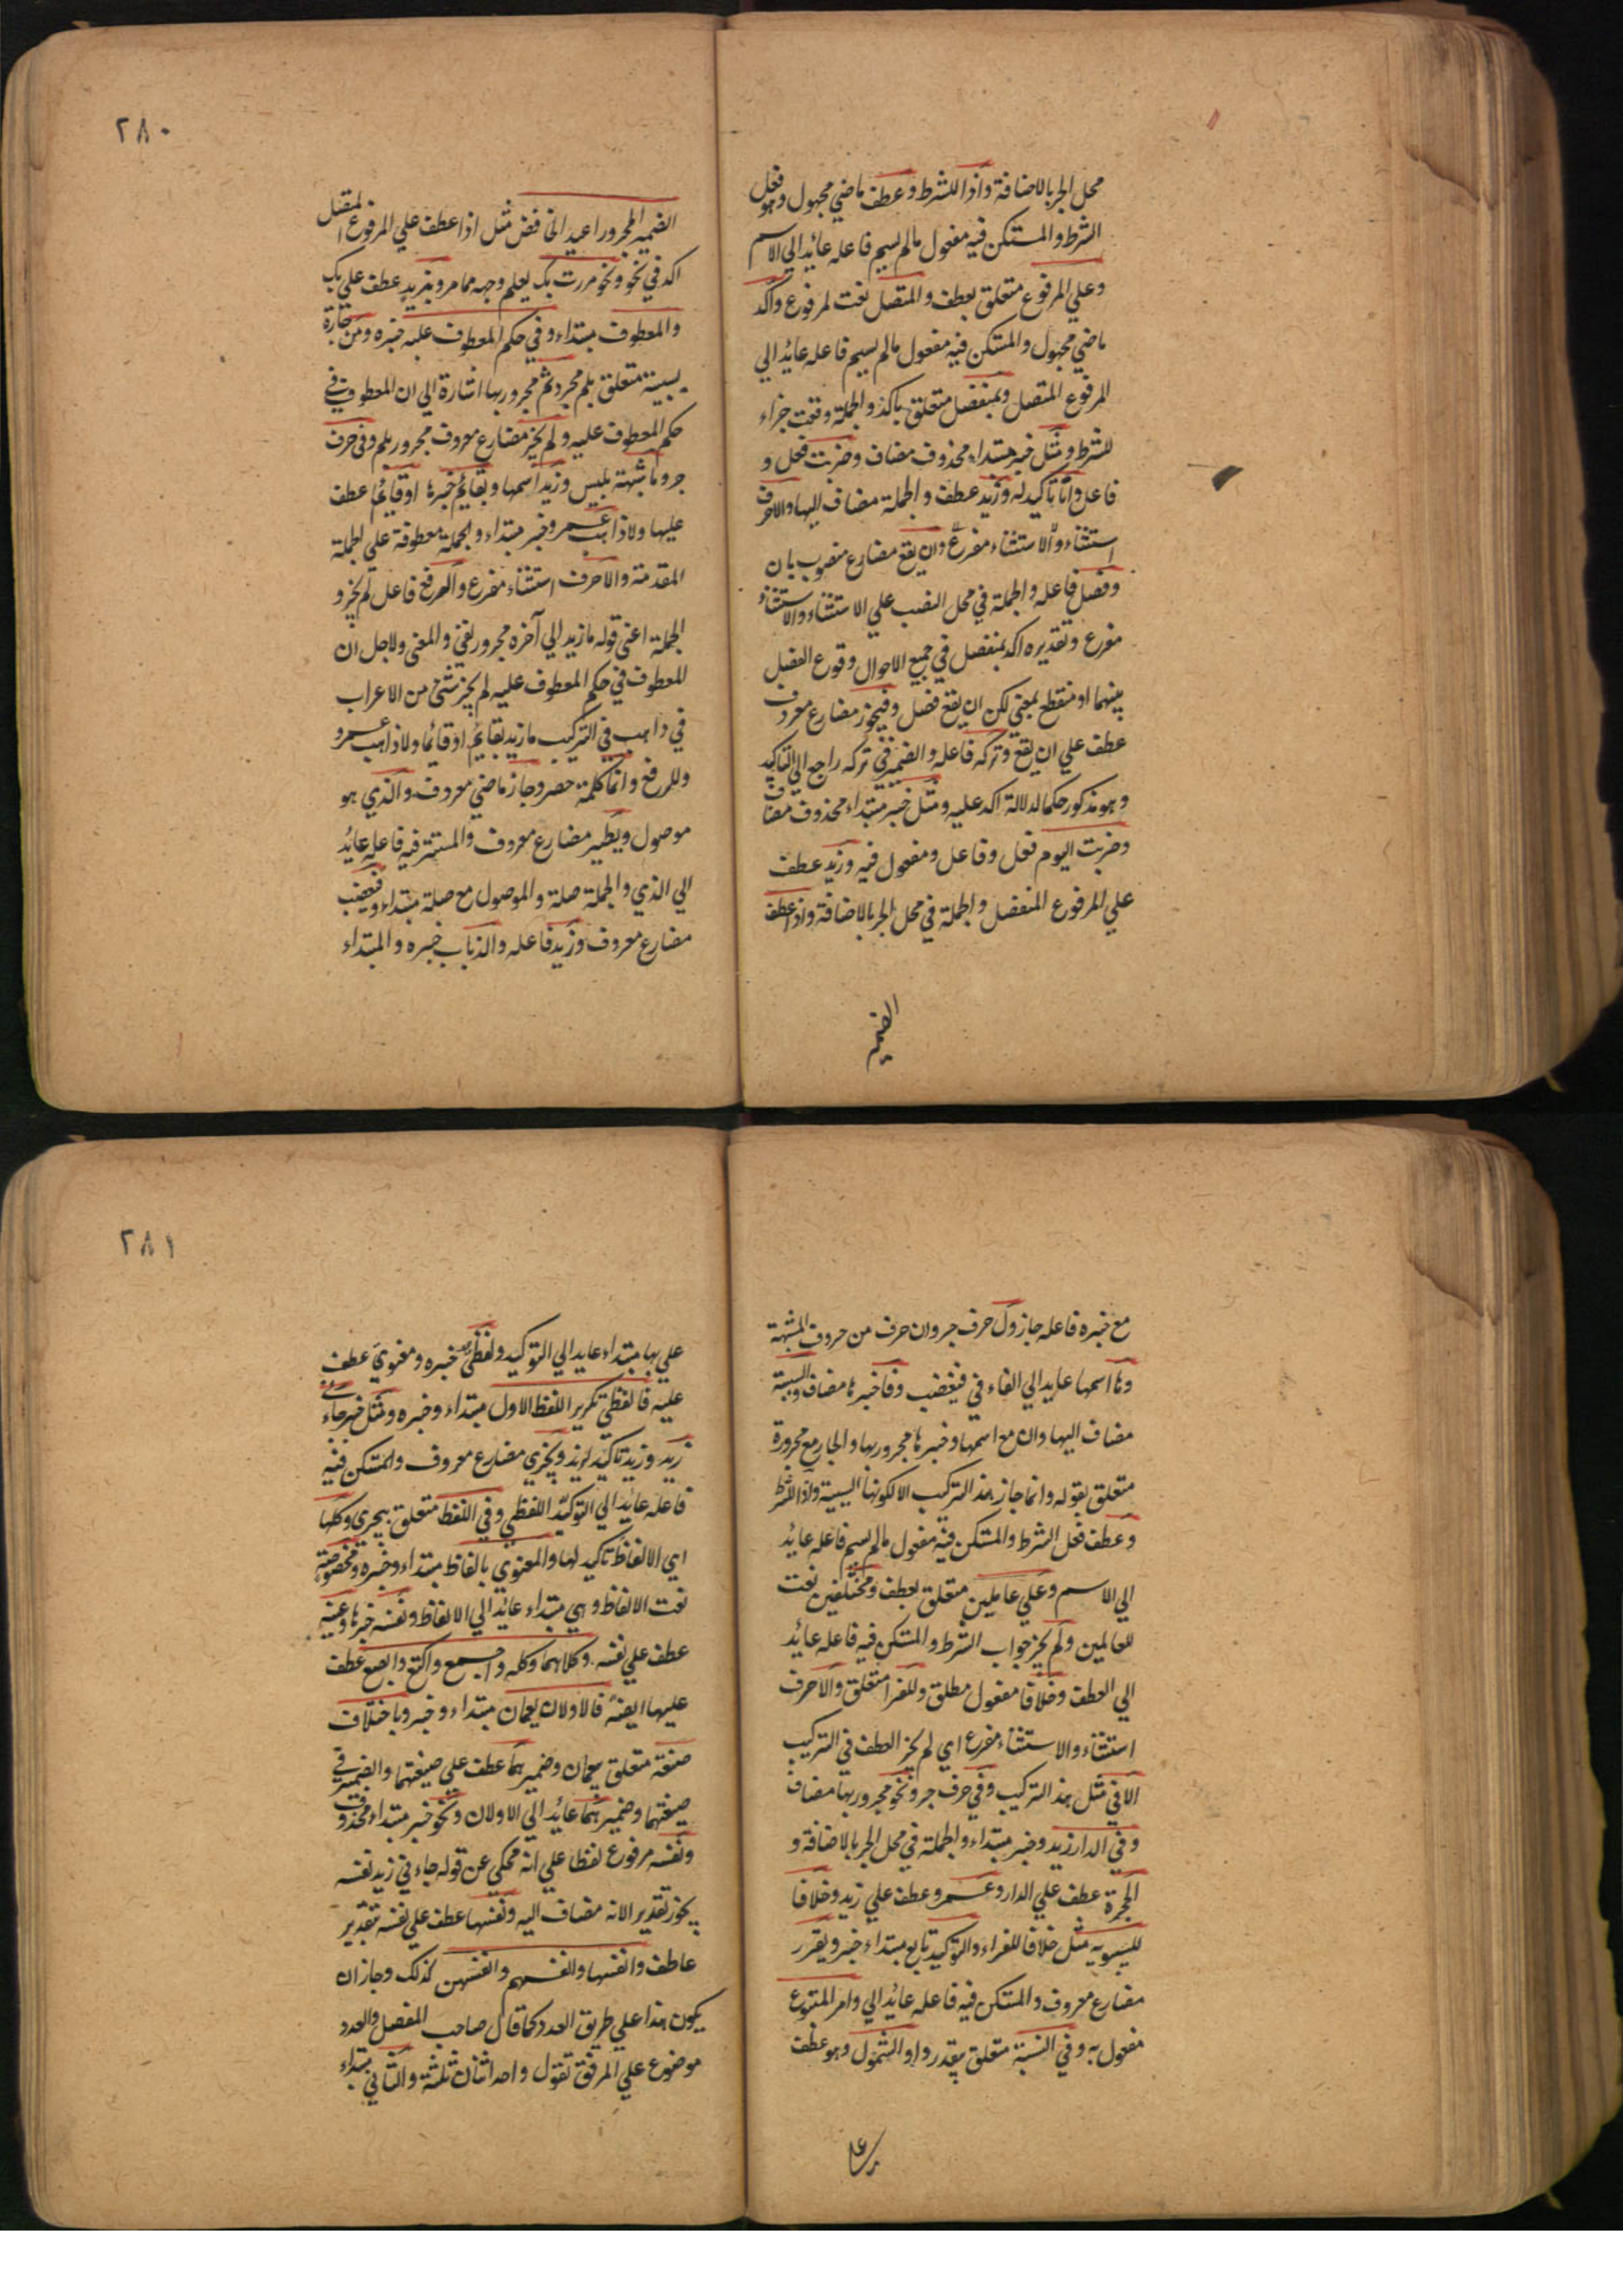 محل الجر بالاضافة واذا للشرط وعطف ماضي مجهول وهو فعل
الشرط والمستكن فيه مفعول مالم يسم فاعله عائد الي الاسم
وعلي المرفوع متعلق بعطف والمتصل نعت لمرفوع واكد
ماضي مجهول والمستكن فيه مفعول مالم يسم فاعله عائد الي
المرفوع المتصل وبمنفصل متعلق باكد والجملة وقعت جزاء
للشرط ومثل خبر مبتداء محذوف مضاف وضربت فعل و
فاعل وانا تاكيد له وزيد عطف والجملة مضاف اليها والا حرف
استثناء والاستثناء مفرغ وان يقع مضارع منصوب بان
وفصل فاعله والجملة في محل النصب علي الاستثناء والاستثناء
مفرغ وتقديره اكد بمنفصل في جميع الاحوال وقوع الفصل
بينهما او منقطع بمعني لكن ان يقع فصل وفيجوز مضارع معروف
عطف علي ان يقع وتركه فاعله والضمير في تركه راجع الي التاكيد
وهو مذكور حكما لدلالة اكد عليه ومثل خبر مبتداء محذوف مضاف
وضربت اليوم فعل وفاعل ومفعول فيه وزيد عطف
علي المرفوع المنفصل والجملة في محل الجر بالاضافة واذا عطف
الضمير
٢٨٠
الضمير المجرور اعيد الخافض مثل اذا عطف علي المرفوع المتصل
اكد في نحو ونحو مررت بك يعلم وجهه مما مر وبزيد عطف علي بك
والمعطوف مبتداء وفي حكم المعطوف عليه خبره ومن جارة
سببية متعلق بلم يجز وثم مجرور بها اشارة الي ان المعطوف في
حكم المعطوف عليه ولم يجز مضارع معروف مجرور بلم وفي حرف
جر وما شبهة بليس وزيد اسمها وبقايم خبرها او قايما عطف
عليها ولا ذاهب عمرو خبر مبتداء والجملة معطوفة علي الجملة
المقدمة والا حرف استثناء مفرغ والرفع فاعل لم يجز و
الجملة اعني قوله ما زيد الي آخره مجرور بفي والمعني ولاجل ان
المعطوف في حكم المعطوف عليه لم يجز شئ من الاعراب
في ذاهب في التركيب ما زيد بقايم او قائما ولا ذاهب عمرو
والرفع وانما كلمة حصر وجاز ماضي معروف والذي هو
موصول ويطير مضارع معروف والمستتر فيه فاعله عائد
الي الذي والجملة صلة والموصول مع صلة مبتداء وفيغضب
مضارع معروف وزيد فاعله والذباب خبره والمبتداء
مع خبره فاعله جاز ول حرف جر وان حرف من حروف المشبهة
وها اسمها عايد الي الفاء في فيغضب وفا خبرها مضاف والسببية
مضاف اليها وان مع اسمها وخبرها مجرور بها والجار مع مجروره
متعلق بقوله وانما جاز هذ التركيب الا لكونها السببية واذا للشرط
وعطف فعل الشرط والمستكن فيه مفعول مالم يسم فاعله عايد
الي الاسم وعلي عاملين متعلق بعطف ومختلفين نعت
للعاملين ولم يجز جواب الشرط والمستكن فيه فاعله عائد
الي العطف وخلافا مفعول مطلق وللفرا متعلق والا حرف
استثناء والاستثناء مفرغ اي لم يجز العطف في التركيب
الا في مثل هذ التركيب وفي حرف جر ونحو مجرور بها مضاف
وفي الدار زيد وخبر مبتداء والجملة في محل الجر بالاضافة و
الحجرة عطف علي الدار وعمرو عطف علي زيد وخلافا
لسيبويه مثل خلافا للفراء والتوكيد تابع مبتداء خبر ويقرر
مضارع معروف والمستكن فيه فاعله عائد الي وامر المتبوع
مفعول به وفي النسبة متعلق بيقرر واو الشمول وهو عطف
٢٨١
علي بها مبتداء عايد الي التوكيد ولفظي خبره ومعنوي عطف
عليه فالفظي تكرير اللفظ الاول مبتداء وخبره ومثل خبر جاءني
زيد وزيد تاكيد لزيد ويجري مضارع معروف والمستكن فيه
فاعله عايد الي التوكيد اللفظي وفي اللفظ متعلق بيجري وكلها
اي الالفاظ تاكيد لها والمعنوي بالفاظ مبتداء وخبره ومخصوصة
نعت الالفاظ وهي مبتداء عائد الي الالفاظ ونفسه خبرها وعينه
عطف علي نفسه وكلاهما وكله واجمع واكتع وابصع عطف
عليها ايضا فالاولان يعمان مبتداء وخبر وباختلاف
صنعة متعلق يعمان وضميرهما عطف علي صيغتهما والضمير في
صيغتهما وضميرهما عائد الي الاولان ونحو خبر مبتداء محذوف
ونفسه مرفوع لفظا علي انه محكي عن قوله جاءني زيد نفسه
يجوز تقدير الانه مضاف اليه ونفسها عطف علي نفسه بتقدير
عاطف وانفسها وانفسهم وانفسهن كذلك وجاز ان
يكون هذا علي طريق العدد كما قال صاحب المفصل والعدد
موضوع علي المرفق تقول واحد اثنان ثلثة والثاني مبتداء